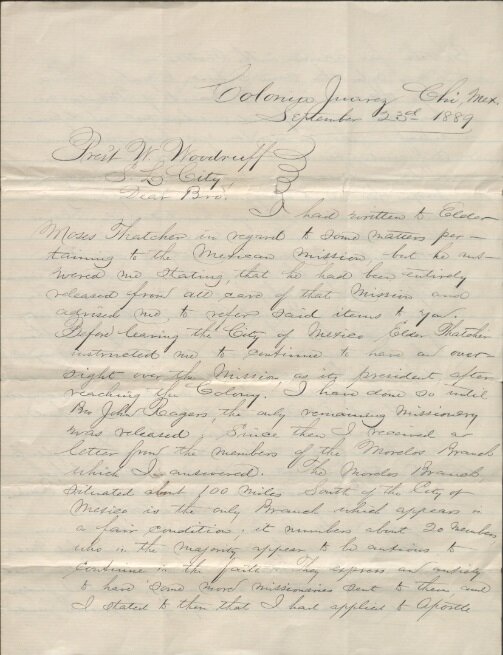 Colonia Juarez Chi, Mex
September 23rd 1889
Prest W. Woodruff
S. L. City
Dear Bro.
I had written to Elder
Moses Thatcher in regard to some matters per-
taining to the Mexican mission, but he ans-
wered me stating, that he had been entirely
released from all care of that Mission and
advised me to refer said items to you.
Before leaving the City of Mexico Elder Thatcher
instructed me to continue to have an over-
sight over the Mission, as its president, after
reaching the Colony. I have done so until
Bro John Rogers, the only remaining Missionery
was released. Since then I received a
letter from the members of the Morelos Branch
which I answered. The Morelos Branch
situated about 100 miles South of the City of
Mexico is the only Branch which appears in
a fair condition; it numbers about 20 members
who in the majority appear to be anxious to
continue in the faith. They express an anxiety
to have some more missionaries sent to them, and
I stated to them that I had applied to Apostle